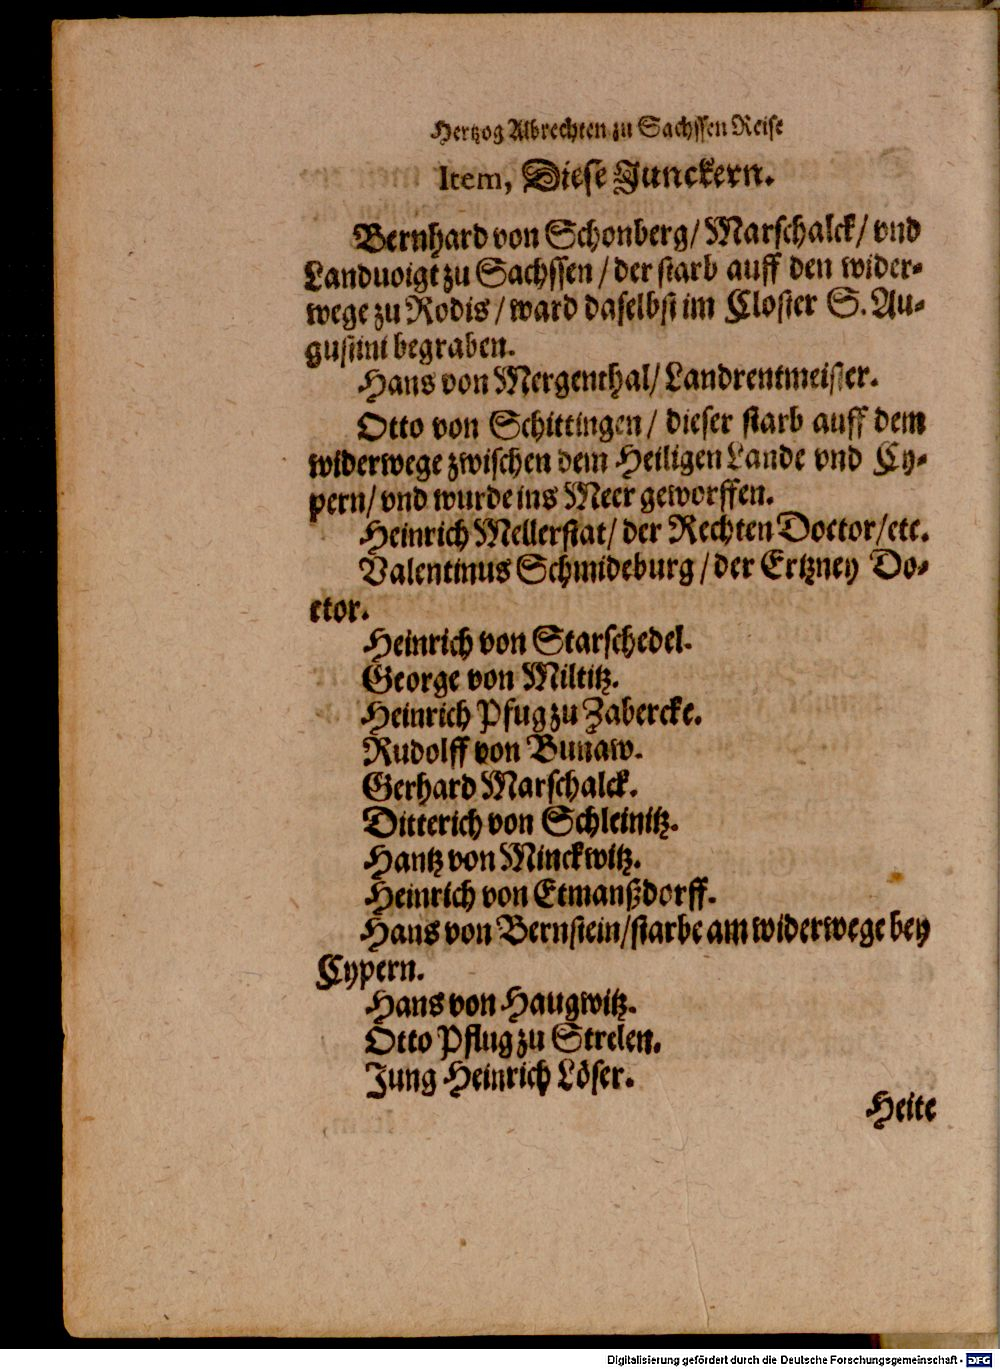 Hertzog Albrechten zu Sachssen Reise
Item, Diese Junckern.
Bernhard von Schonberg/ Marschalck/ vnd
Landuoigt zu Sachssen / der starb auff den wider-
wege zu Rodis / ward daselbst im Closter S. Au-
gustini begraben.
Hans von Mergenthal/ Landrentmeister.
Otto von Schittingen / dieser starb auff dem
widerwege zwischen dem Heiligen Lande vnd Cy-
pern/ vnd wurde ins Meer geworffen.
Heinrich Mellerstat/ der Rechten Doctor/ etc.
Valentinus Schmideburg / der Ertzney Do-
ctor.
Heinrich von Starschedel.
George von Miltitz.
Heinrich Pfug zu Zabercke.
Rudolff von Bunaw.
Gerhard Marschalck.
Ditterich von Schleinitz.
Hantz von Minckwitz.
Heinrich von Etmanßdorff.
Hans von Bernstein/ starbe am widerwege bey
Cypern.
Hans von Haugwitz.
Otto Pflug zu Strelen.
Jung Heinrich Löser.
Heite
Digitalisierung gefördert durch die Deutsche Forschungsgemeinschaft - DFG